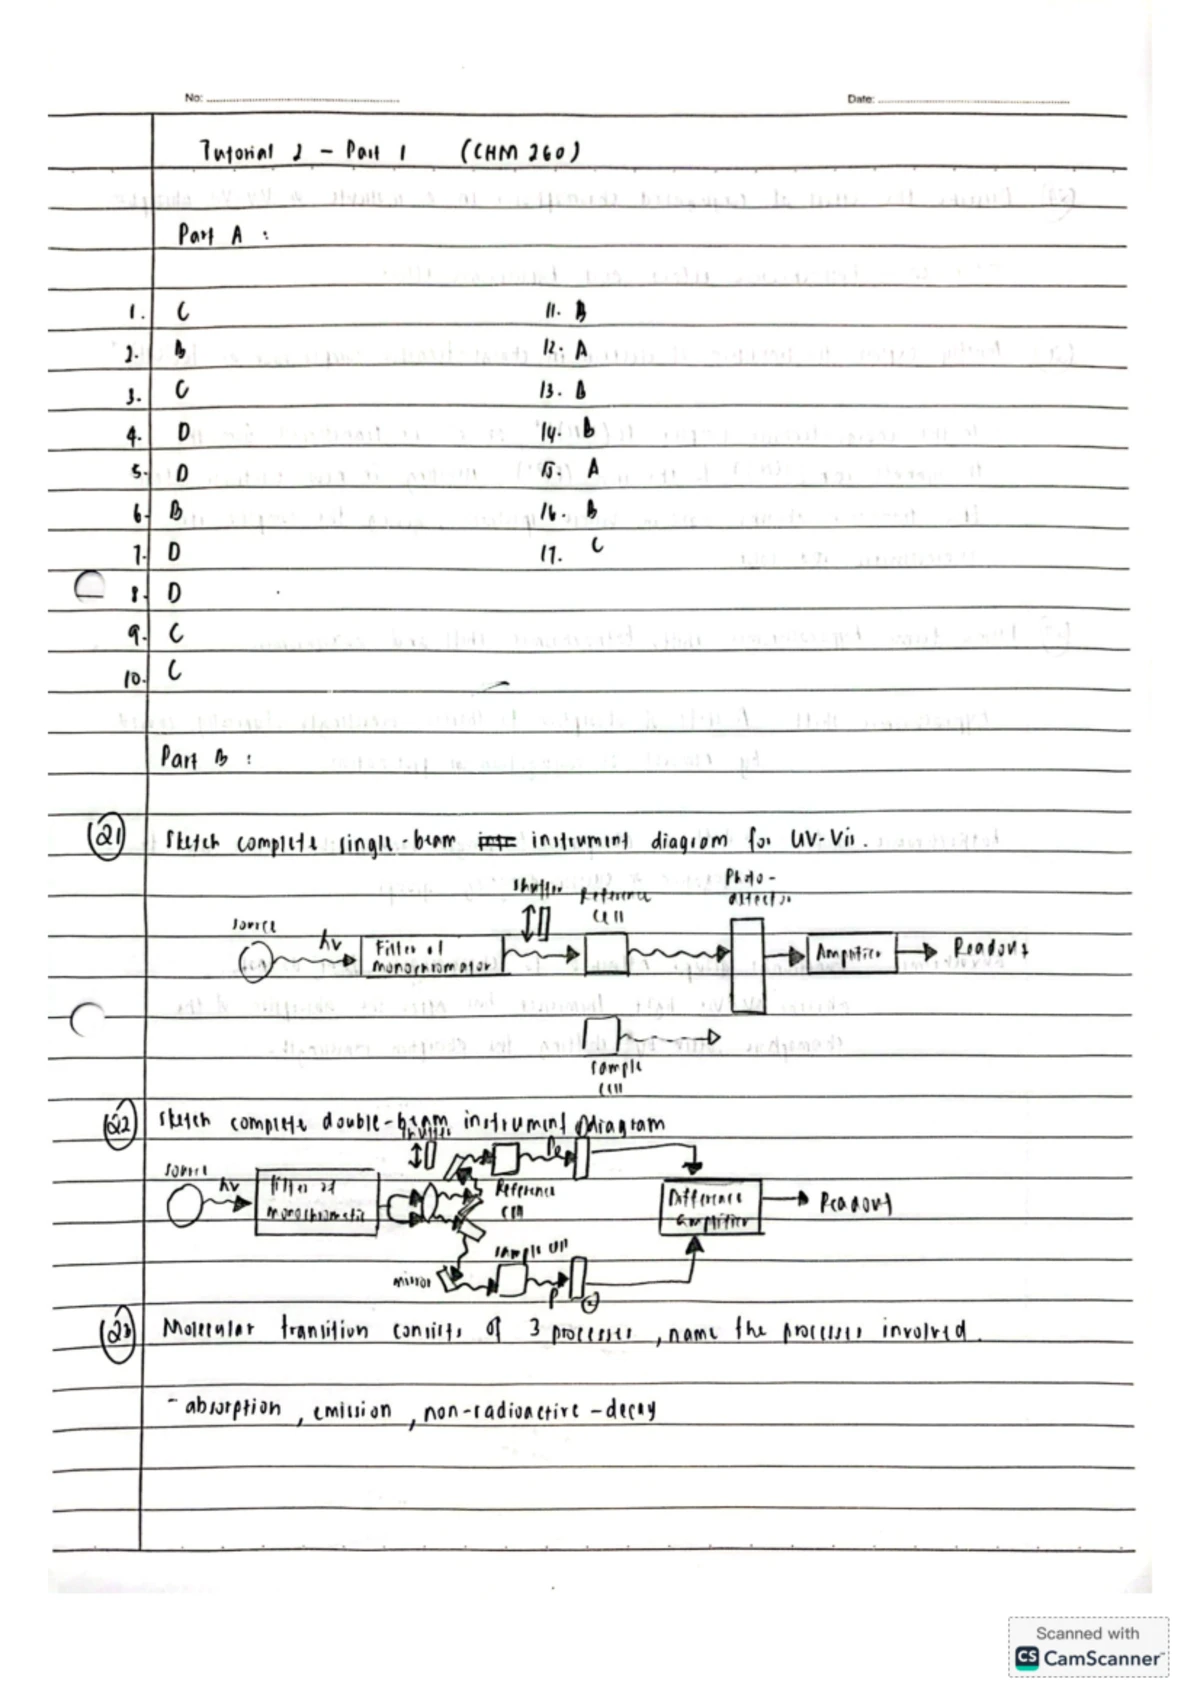 No:
Date:
Tutorial 2 - Part 1 (CHM 260)
Part A :
1. C
2. B
3. C
4. D
5. D
6. B
7. D
8. D
9. C
10. C
11. B
12. A
13. B
14. B
15. A
16. B
17. C
Part B :
Q1 Sketch complete single-beam instrument diagram for UV-Vis.
source
hv
Filter or
monochromator
shutter
Reference
cell
Photo-
detector
Amplifier
Readout
sample
cell
Q2 Sketch complete double-beam instrument diagram
source
hv
Filter or
monochromatic
shutter
Reference
cell
Difference
amplifier
Readout
mirror
sample cell
P
Q3 Molecular transition consists of 3 processes, name the processes involved.
- absorption, emission, non-radioactive-decay
Scanned with
CS CamScanner